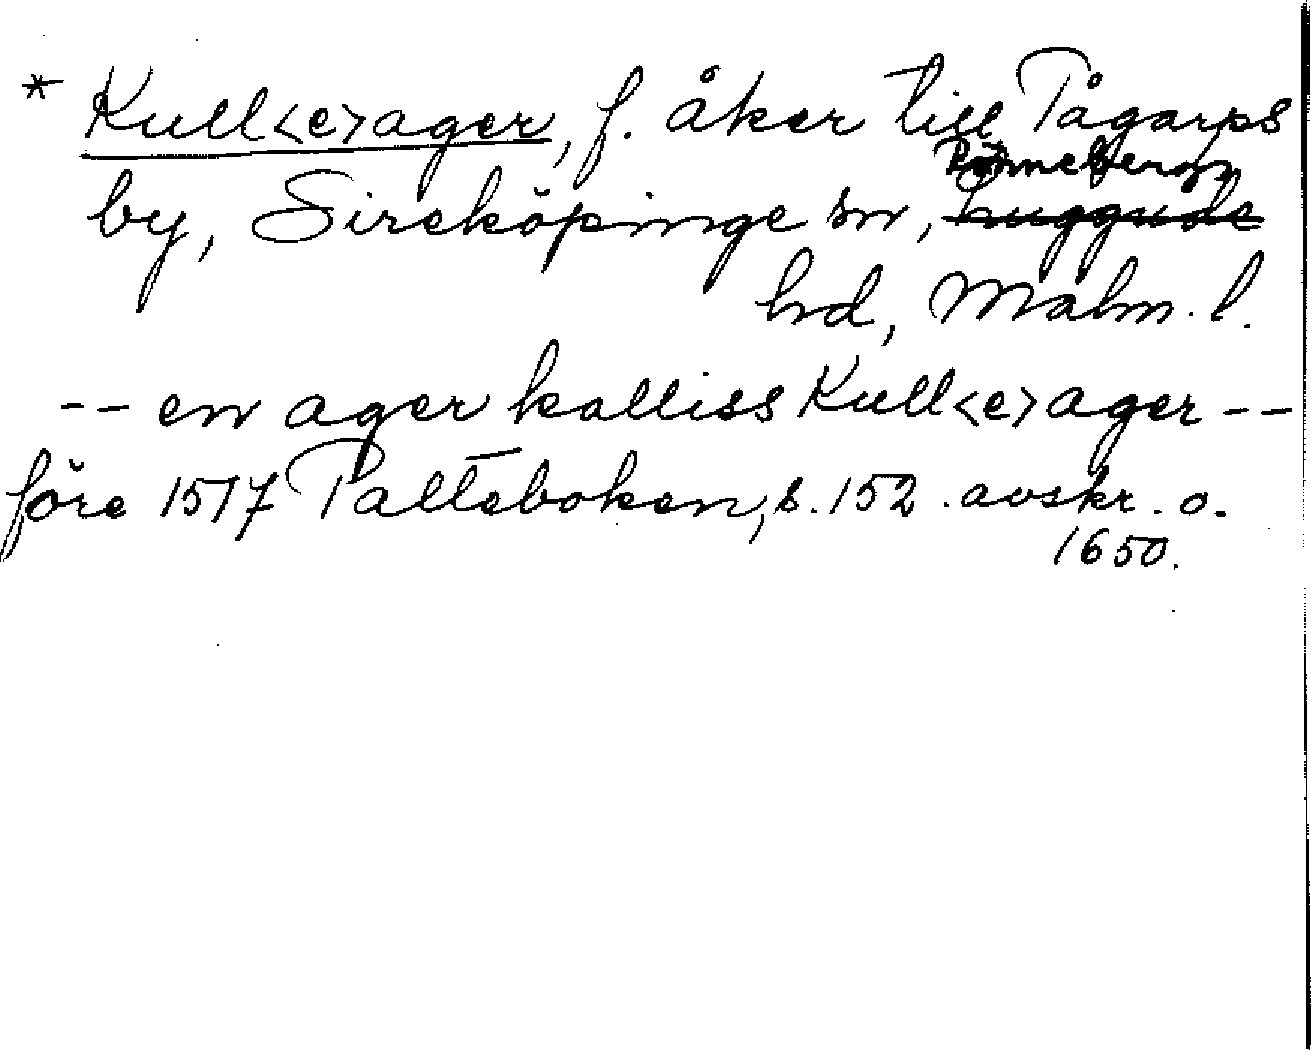 * Kull<e>ager, f. åker till Tågarps
Rönnebergs
by, Sireköpinge sn, Luggude
hd, Malm. l.
-- en ager kalliss Kull<e>ager --
före 1517 Palteboken, s. 152. avskr. o.
1650.